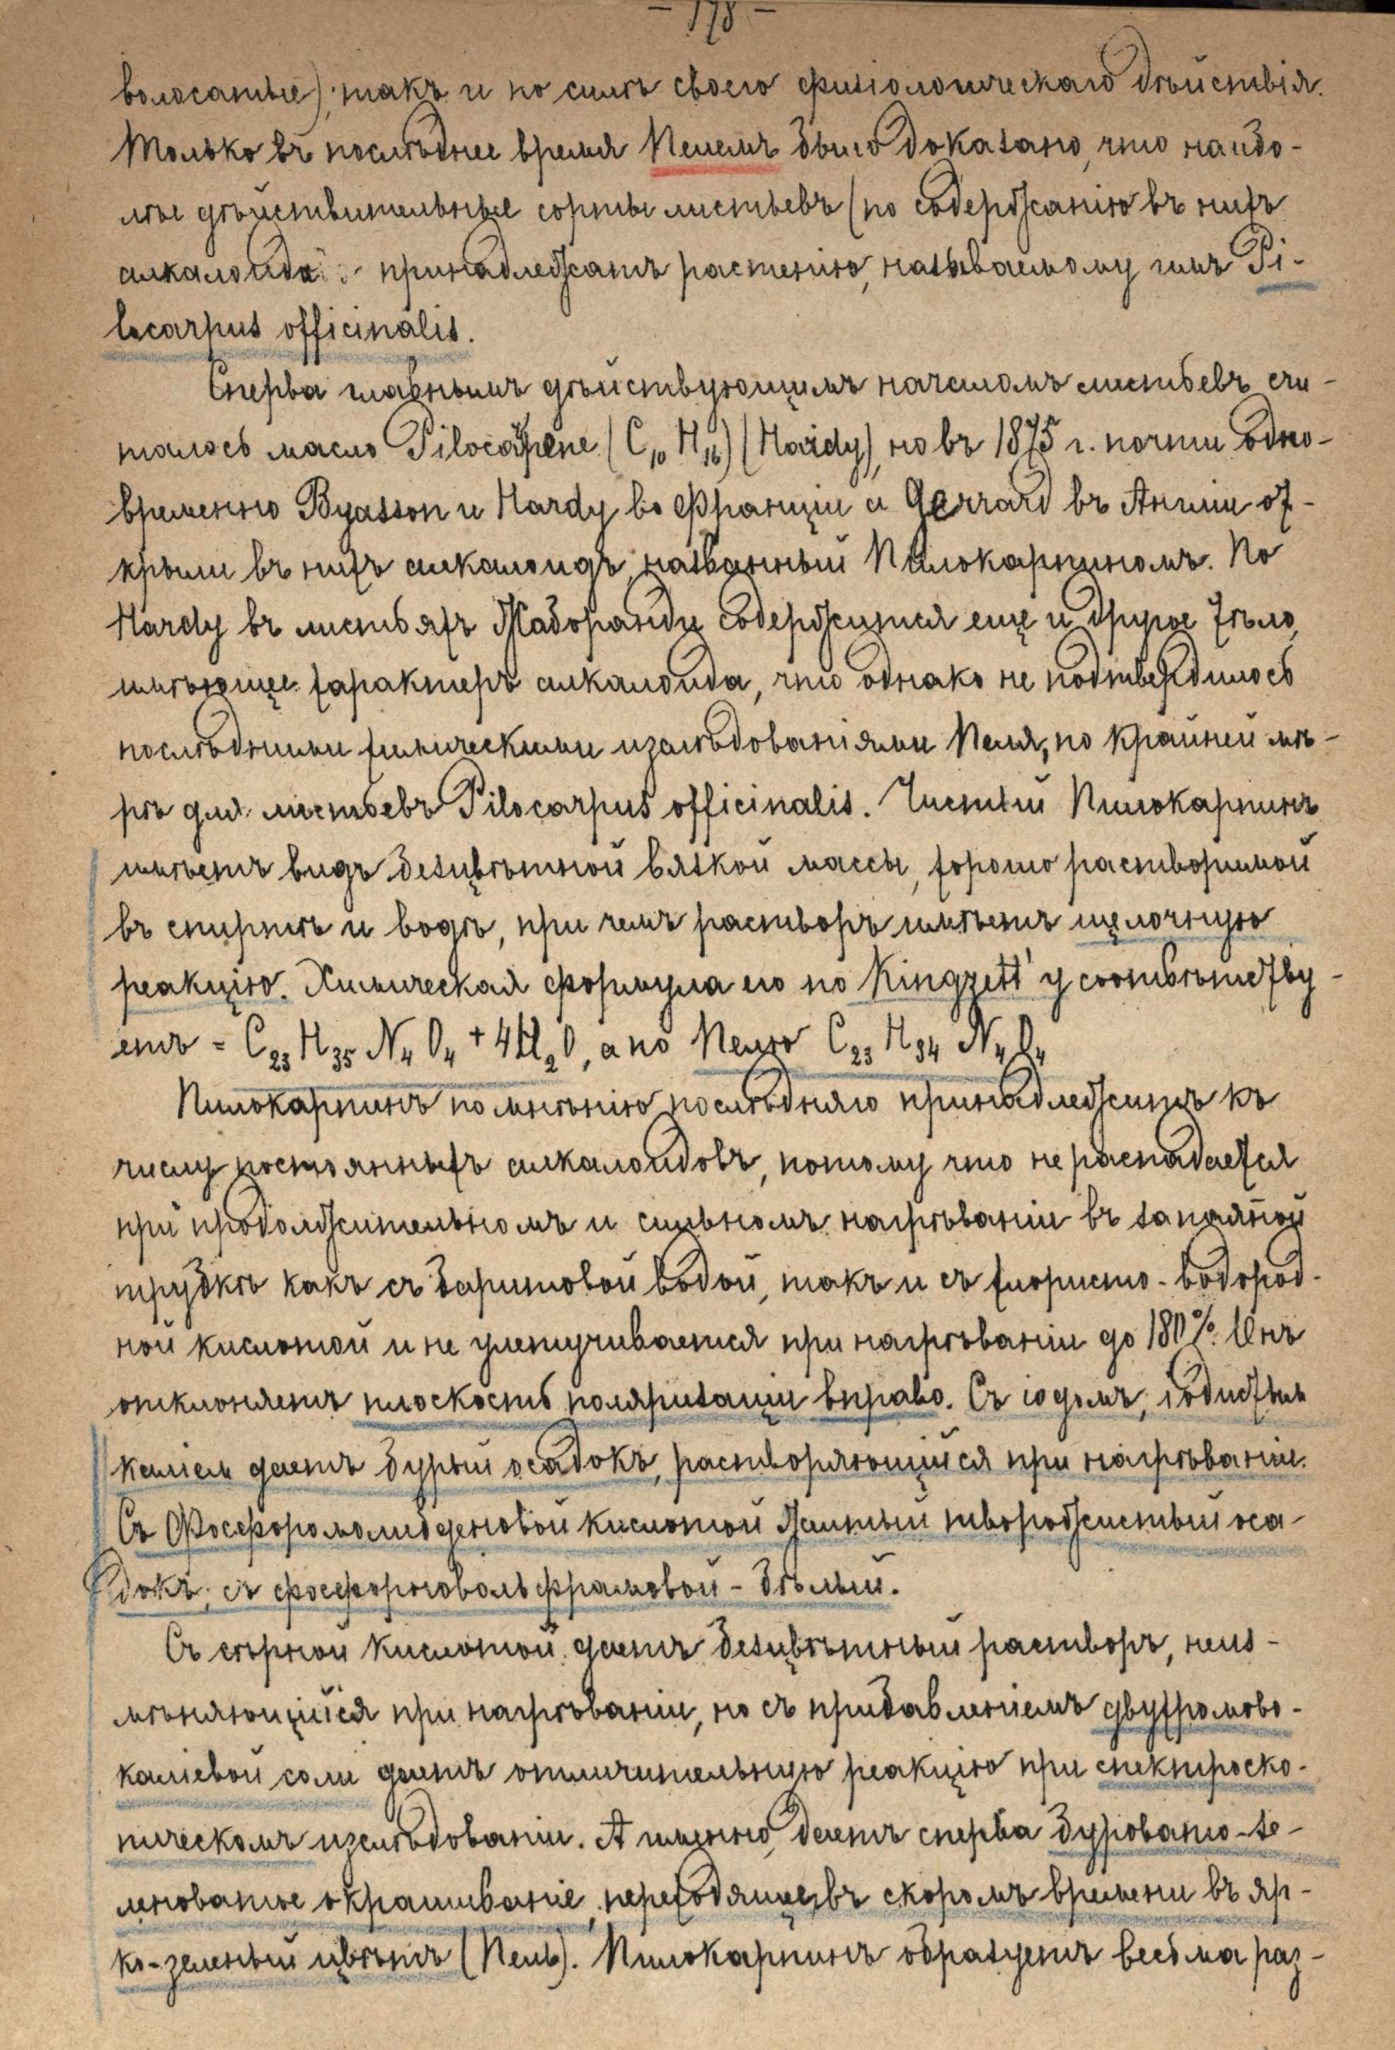 – 178 –
волосатые), такъ и по силѣ своего физіологическаго дѣйствія.
Только въ послѣднее время Пелемъ было доказано, что наибо-
лѣе дѣйствительные сорты листьевъ (по содержанію въ нихъ
алкалоида) принадлежатъ растенію, называемому имъ Pi-
locarpus officinalis.
Сперва главнымъ дѣйствующимъ началомъ листьевъ счи-
талось масло Pilocarpene (C₁₀ H₁₆) (Hardy), но въ 1875 г. почти одно-
временно Byasson и Hardy во Франціи и Gerrard въ Англіи от-
крыли въ нихъ алкалоидъ, названный Пилокарпиномъ. По
Hardy въ листьяхъ Жаборанди содержится еще и другое тѣло,
имѣющее характеръ алкалоида, что однако не подтвердилось
послѣдними химическими изслѣдованіями Пеля, по крайней мѣ-
рѣ для листьевъ Pilocarpus officinalis. Чистый Пилокарпинъ
имѣетъ видъ безцвѣтной вязкой массы, хорошо растворимой
въ спиртѣ и водѣ, при чемъ растворъ имѣетъ щелочную
реакцію. Химическая формула его по Kingzett'у соотвѣтству-
етъ = C₂₃ H₃₅ N₄ O₄ + 4H₂O, а по Пелю C₂₃ H₃₄ N₄ O₄
Пилокарпинъ по мнѣнію послѣдняго принадлежитъ къ
числу постоянныхъ алкалоидовъ, потому что не распадается
при продолжительномъ и сильномъ нагрѣваніи въ запаяной
трубкѣ какъ съ баритовой водой, такъ и съ хлористо-водород-
ной кислотой и не улетучивается при нагрѣваніи до 180%. Онъ
отклоняетъ плоскость поляризаціи вправо. Съ іодомъ, іодистымъ
каліемъ даетъ бурый осадокъ, растворяющійся при нагрѣваніи.
Съ Фосфоромолибденовой кислотой желтый творожистый оса-
докъ, съ фосфорновольфрамовой – бѣлый.
Съ сѣрной кислотой даетъ безцвѣтный растворъ, неиз-
мѣняющійся при нагрѣваніи, но съ прибавленіемъ двухромово-
каліевой соли даетъ отличительную реакцію при спектроско-
пическомъ изслѣдованіи. А именно, даетъ сперва буровато-зе-
леноватое окрашиваніе, переходящее въ скоромъ времени въ яр-
ко-зеленый цвѣтъ (Пель). Пилокарпинъ образуетъ весьма раз-